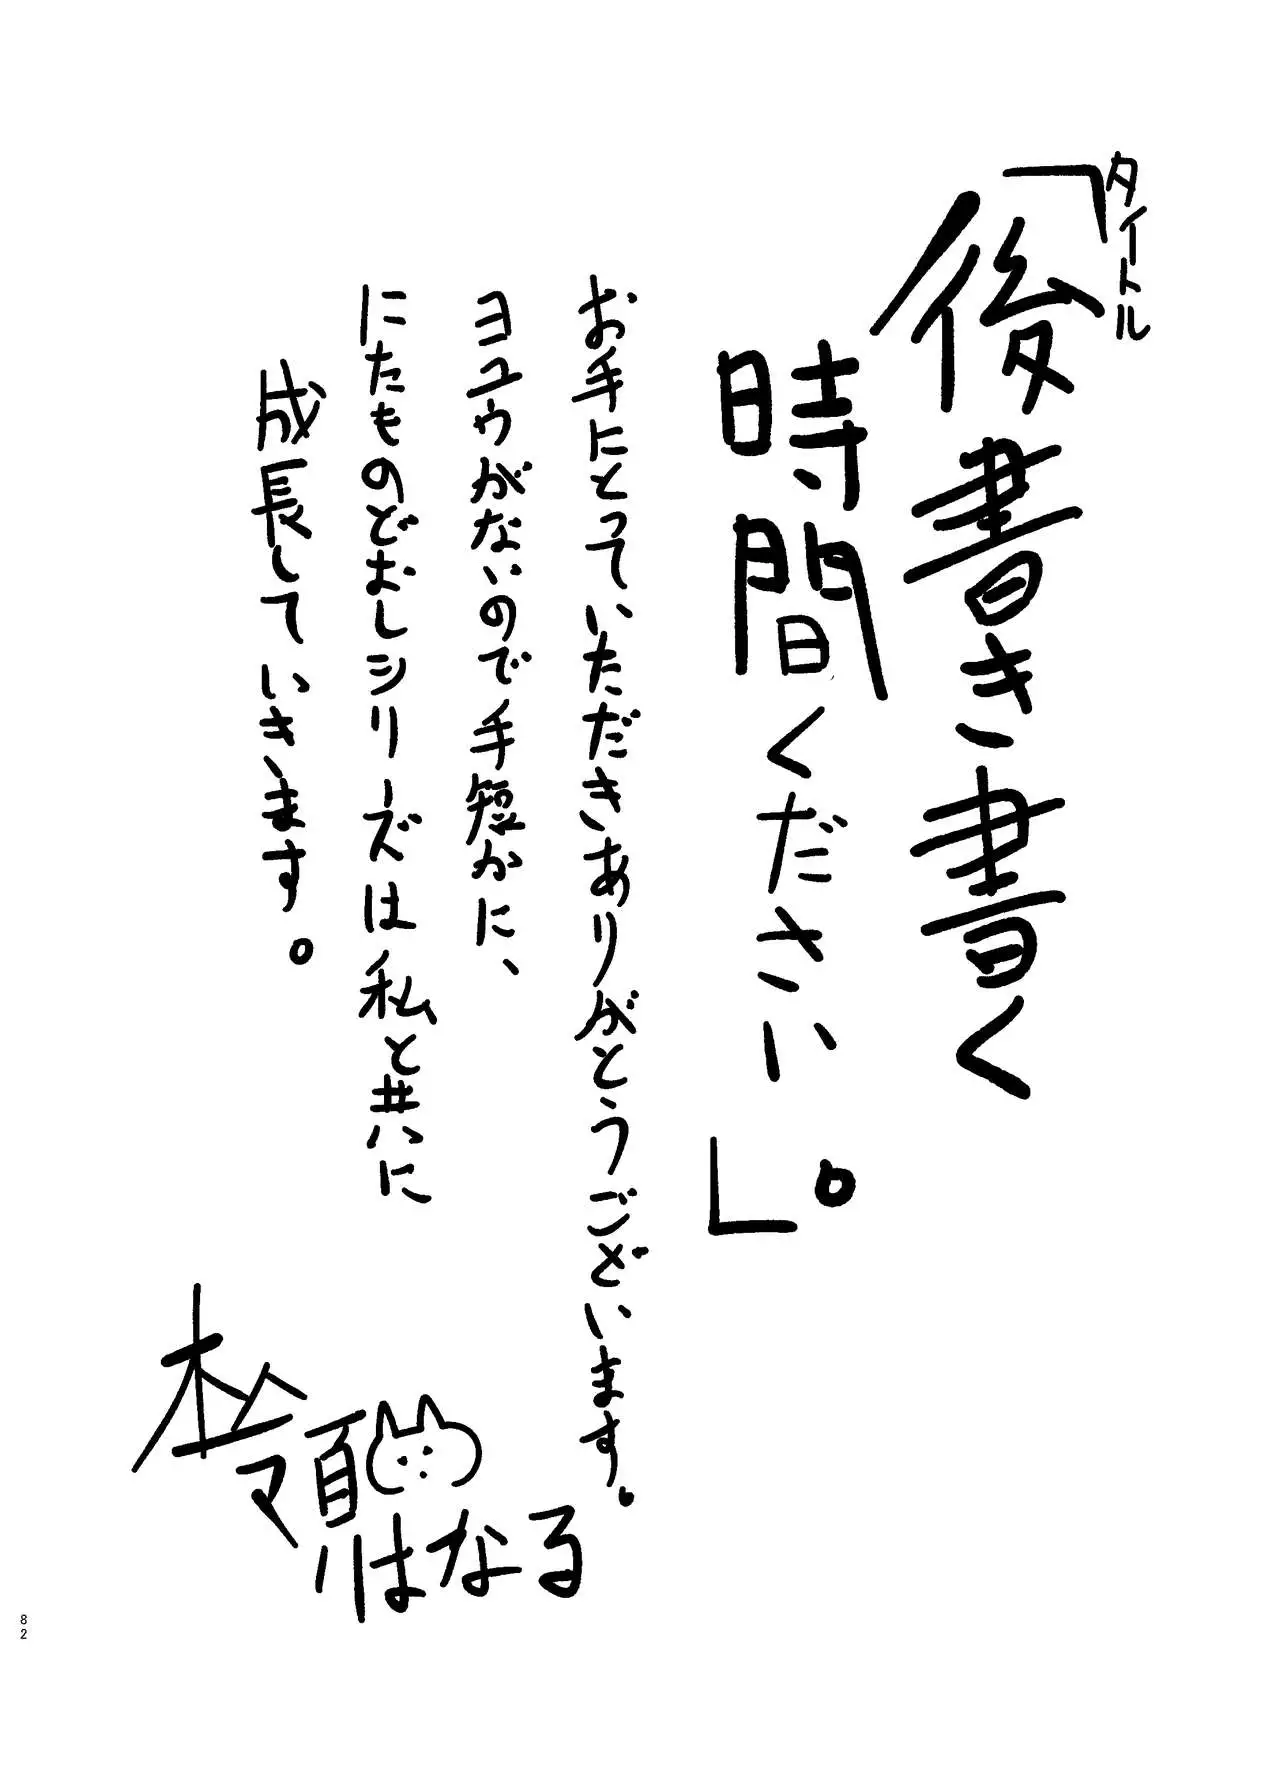 タイトル
「後書き書く
時間ください。」
お手にとっていただきありがとうございます。
ヨユウがないので手短かに、
にたものどおしシリーズは私と共に
成長していきます。
はなる
82